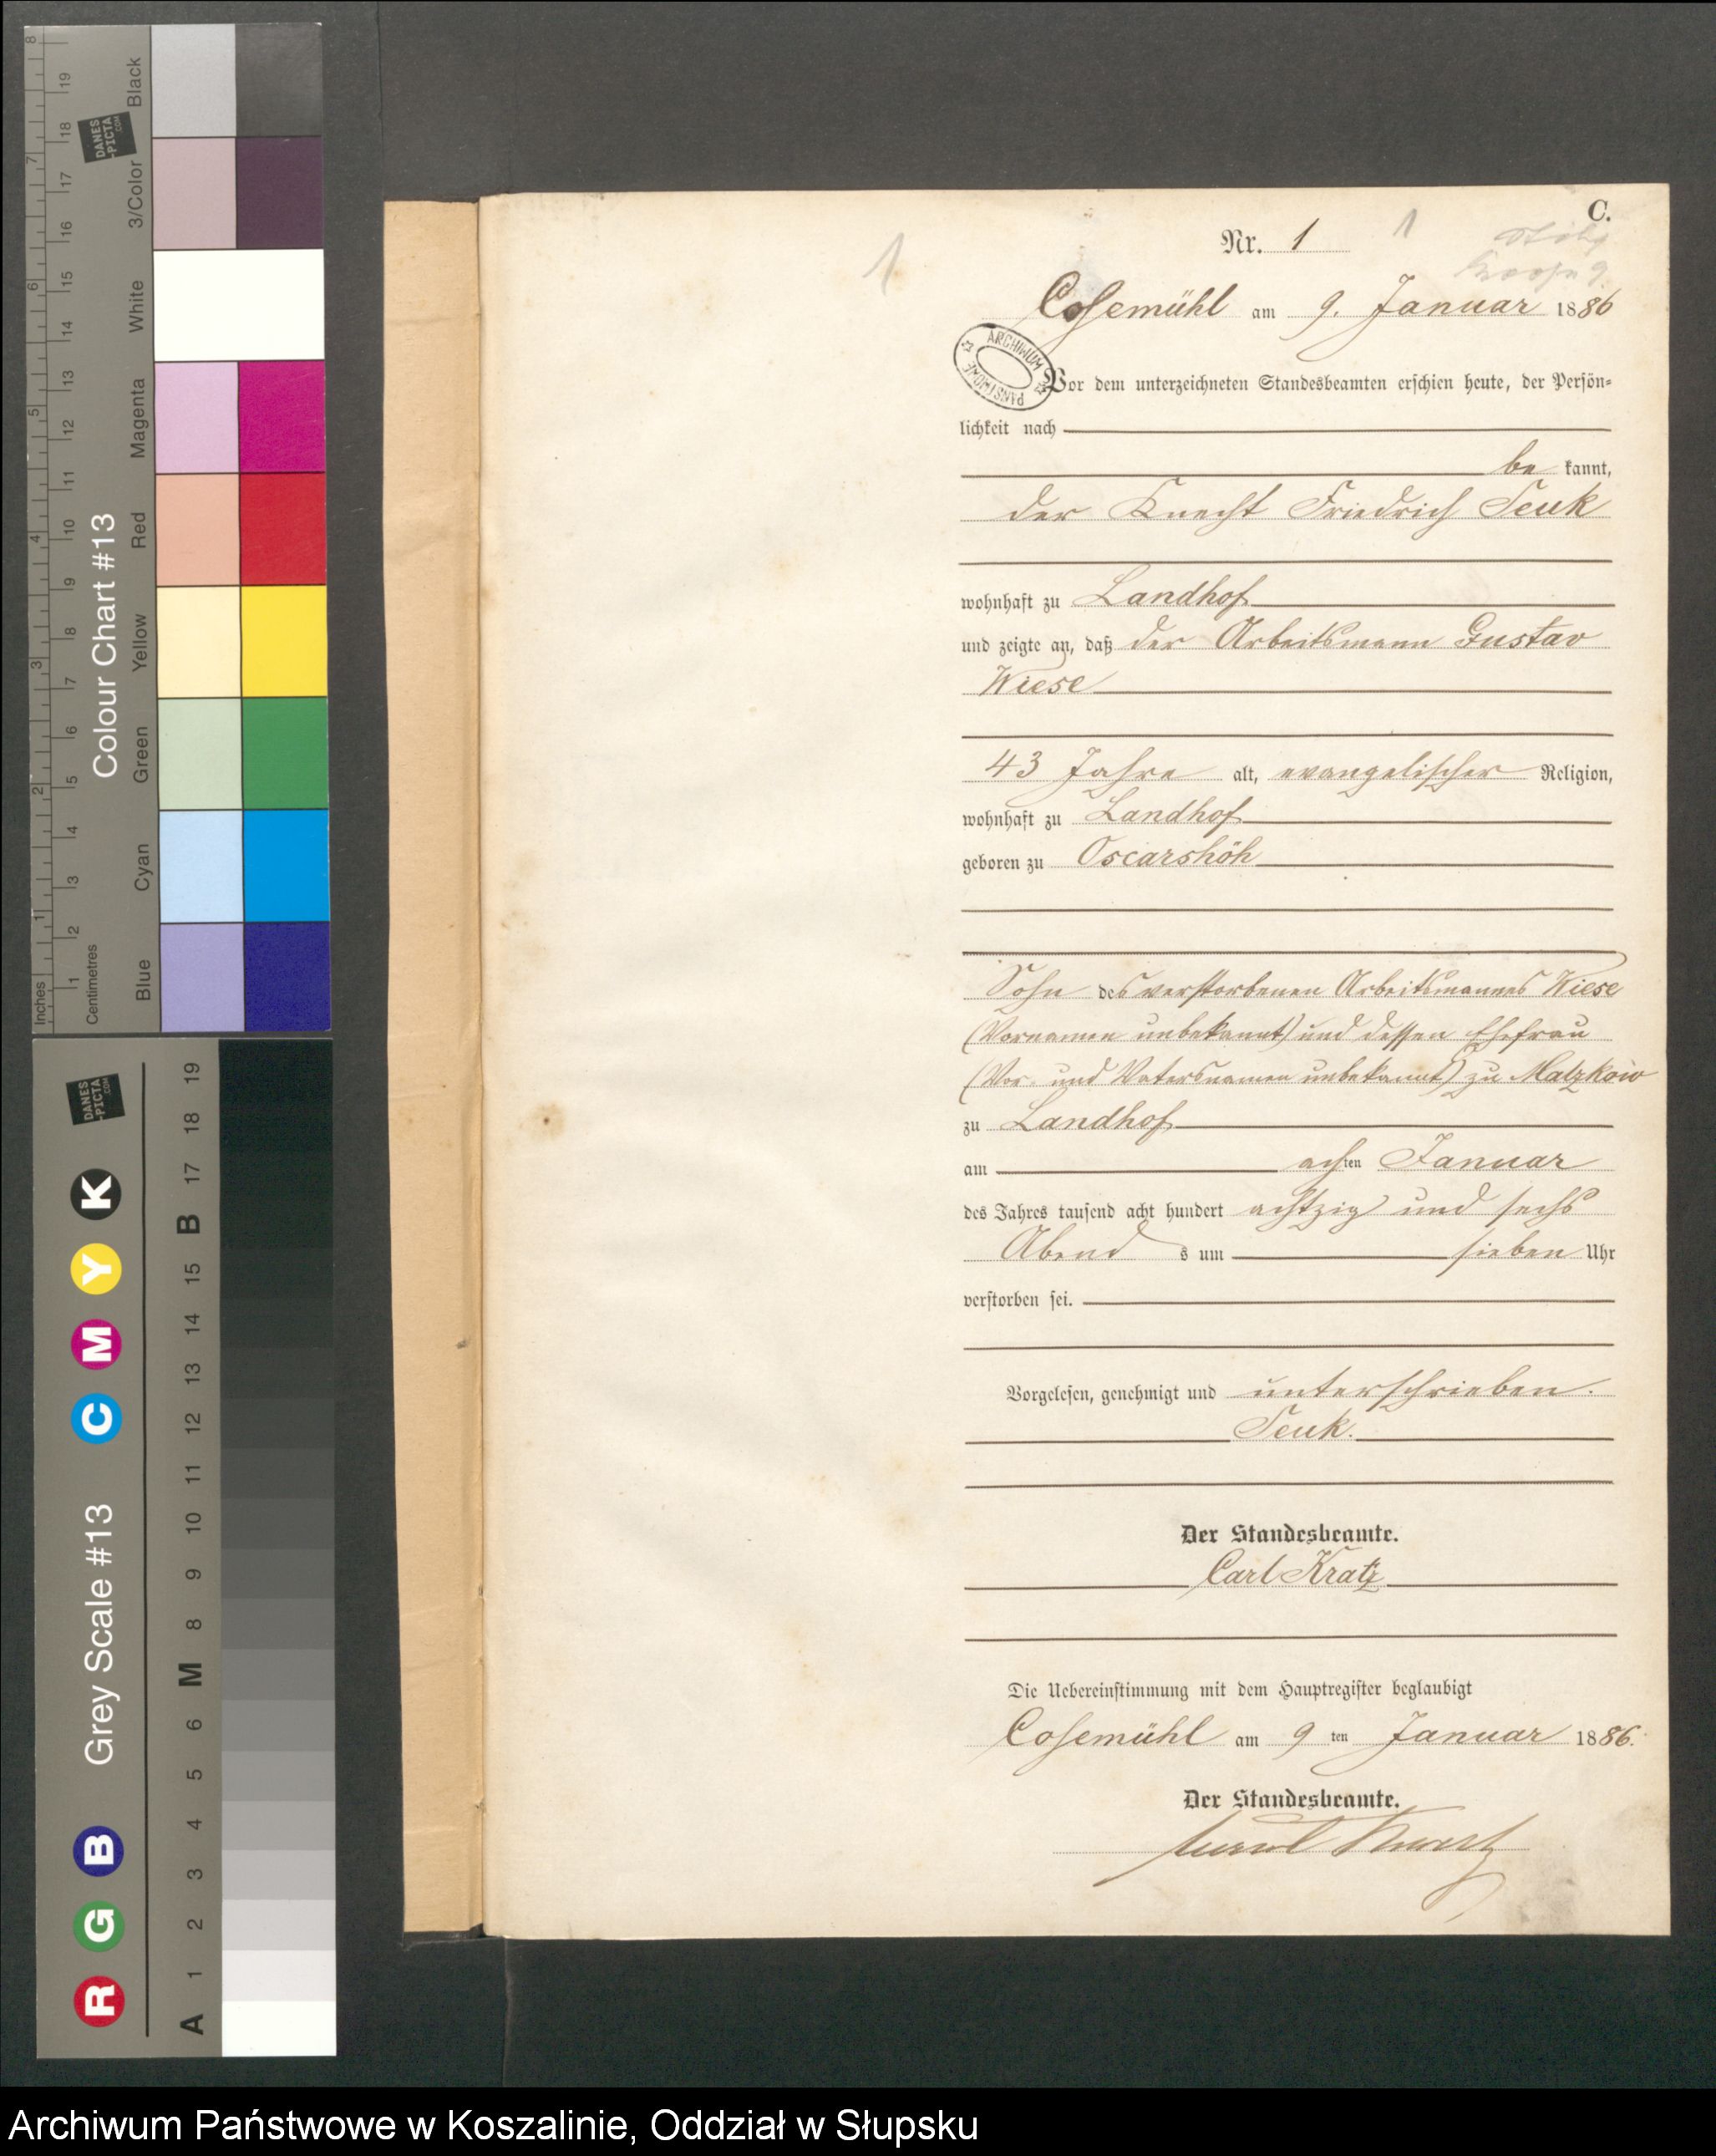 Inches
Centimetres
Colour Chart #13
Blue
Cyan
Green
Yellow
Red
Magenta
White
3/Color
Black
1 2 3 4 5 6 7 8
1 2 3 4 5 6 7 8 9 10 11 12 13 14 15 16 17 18 19
DANES
-PICTA
.COM
R G B
Grey Scale #13
C M Y K
A 1 2 3 4 5 6 M 8 9 10 11 12 13 14 15 B 17 18 19
DANES
-PICTA
.COM
C.
1
Nr. 1
1
Cosemühl am 9. Januar 1886
ARCHIWUM PAŃSTWOWE
Vor dem unterzeichneten Standesbeamten erschien heute, der Persön-
lichkeit nach
be kannt,
der Knecht Friedrich Teuk
wohnhaft zu Landhof
und zeigte an, daß der Arbeitsmann Gustav
Wiese
43 Jahre alt, evangelischer Religion,
wohnhaft zu Landhof
geboren zu Oscarshöh
Sohn des verstorbenen Arbeitsmannes Wiese
(Vornamen unbekannt) und dessen Ehefrau
(Vor- und Vatersnamen unbekannt) zu Malzkow
zu Landhof
am achten Januar
des Jahres tausend acht hundert achtzig und sechs
Abend s um sieben Uhr
verstorben sei.
Vorgelesen, genehmigt und unterschrieben.
Teuk.
Der Standesbeamte.
Carl Kratz
Die Uebereinstimmung mit dem Hauptregister beglaubigt
Cosemühl am 9 ten Januar 1886.
Der Standesbeamte.
Archiwum Państwowe w Koszalinie, Oddział w Słupsku